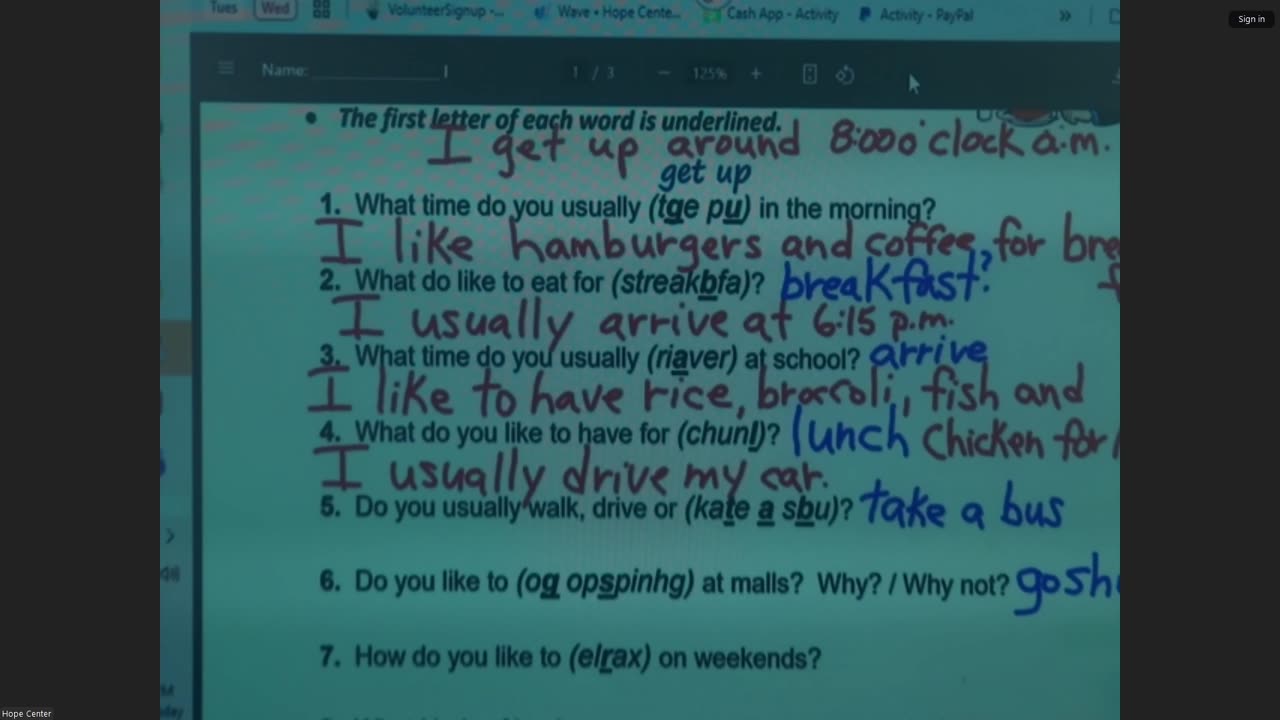 Sign in
Tues Wed VolunteerSignup -... Wave • Hope Cente... Cash App - Activity Activity - PayPal »
Name: 1 / 3 − 125% +
• The first letter of each word is underlined.
I get up around 8:00 o'clock a.m.
get up
1. What time do you usually (tge pu) in the morning?
I like hamburgers and coffee for
2. What do like to eat for (streakbfa)? breakfast?
I usually arrive at 6:15 p.m.
3. What time do you usually (riaver) at school? arrive
I like to have rice, broccoli, fish and
4. What do you like to have for (chunl)? lunch chicken for
I usually drive my car.
5. Do you usually walk, drive or (kate a sbu)? take a bus
6. Do you like to (og opspinhg) at malls? Why? / Why not? go sh
7. How do you like to (elrax) on weekends?
Hope Center